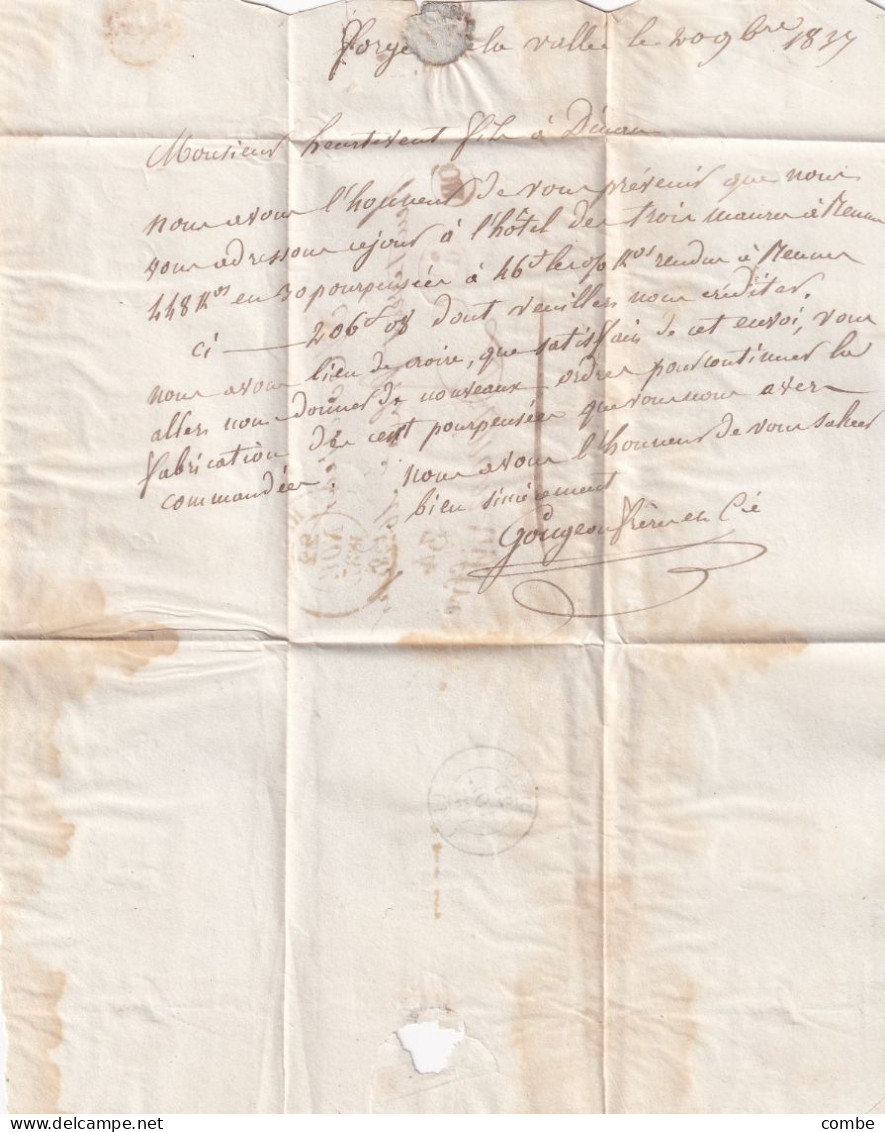 forge de la vallée le 20 9bre 1837
Monsieur heurtevent fils à Dinan
nous avons l'honneur de vous prévenir que nous
vous adressons ce jour à l'hôtel des trois maures à Rennes
448 Kos en 30 pourpensées à 46f les % Kos rendus à Rennes
ci — 206f 08 dont veuillez nous créditer.
nous avons lieu de croire, que satisfait de cet envoi, vous
allez nous donner de nouveaux ordres pour continuer la
fabrication des cent pourpensées que vous nous avez
commandées. nous avons l'honneur de vous saluer
bien sincèrement
Gougeon frères et Cie
delcampe.net
combe